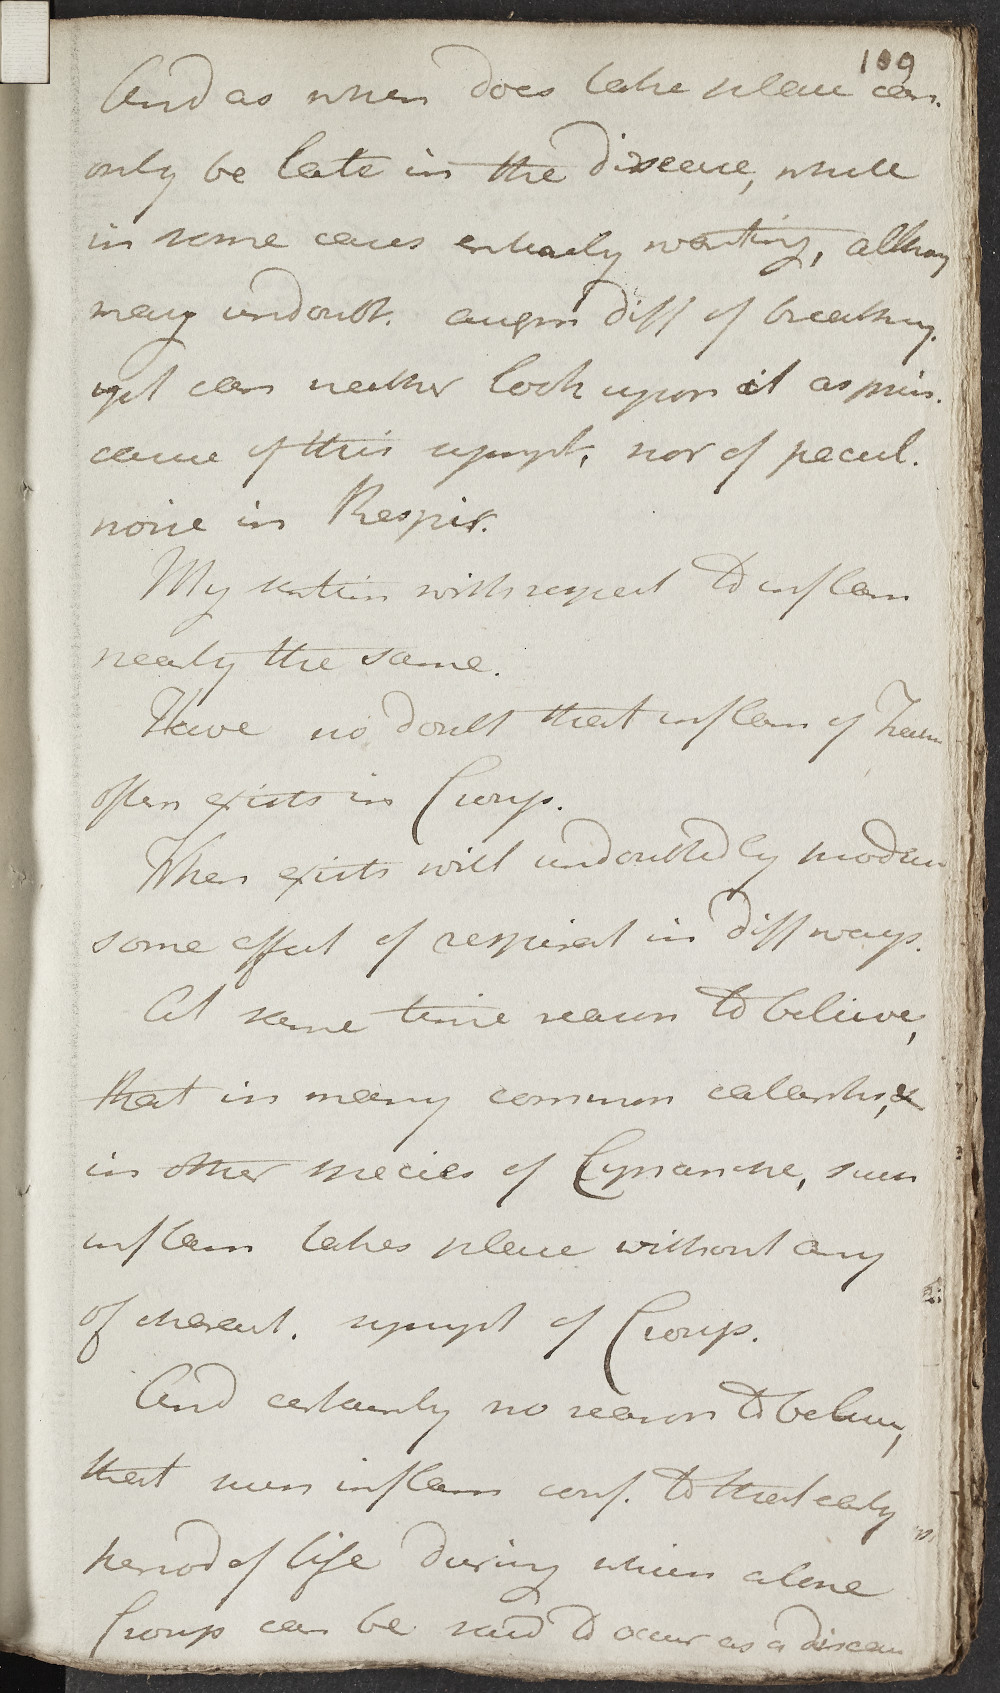 109
And as when does take place can
only be late in the disease, while
in some cases entirely wanting, althoug
may undoubt. augm diff of breathing.
yet can neither look upon it as prin.
cause of this sympt, nor of pecul.
noise in Respir.
My with respect to inflam
nearly the same.
Have no doubt that inflam of
often exists in Croup.
When exists will undoubtedly
some effect of respirat in diff ways.
At same time reason to believe,
that in many common catarrhs, &
in other species of Cynanche, such
inflam takes place without any
of charact. sympt of Croup.
And certainly no reason to believe,
that such inflam conf. to that early
period of life during which alone
Croup can be said to occur as a disease